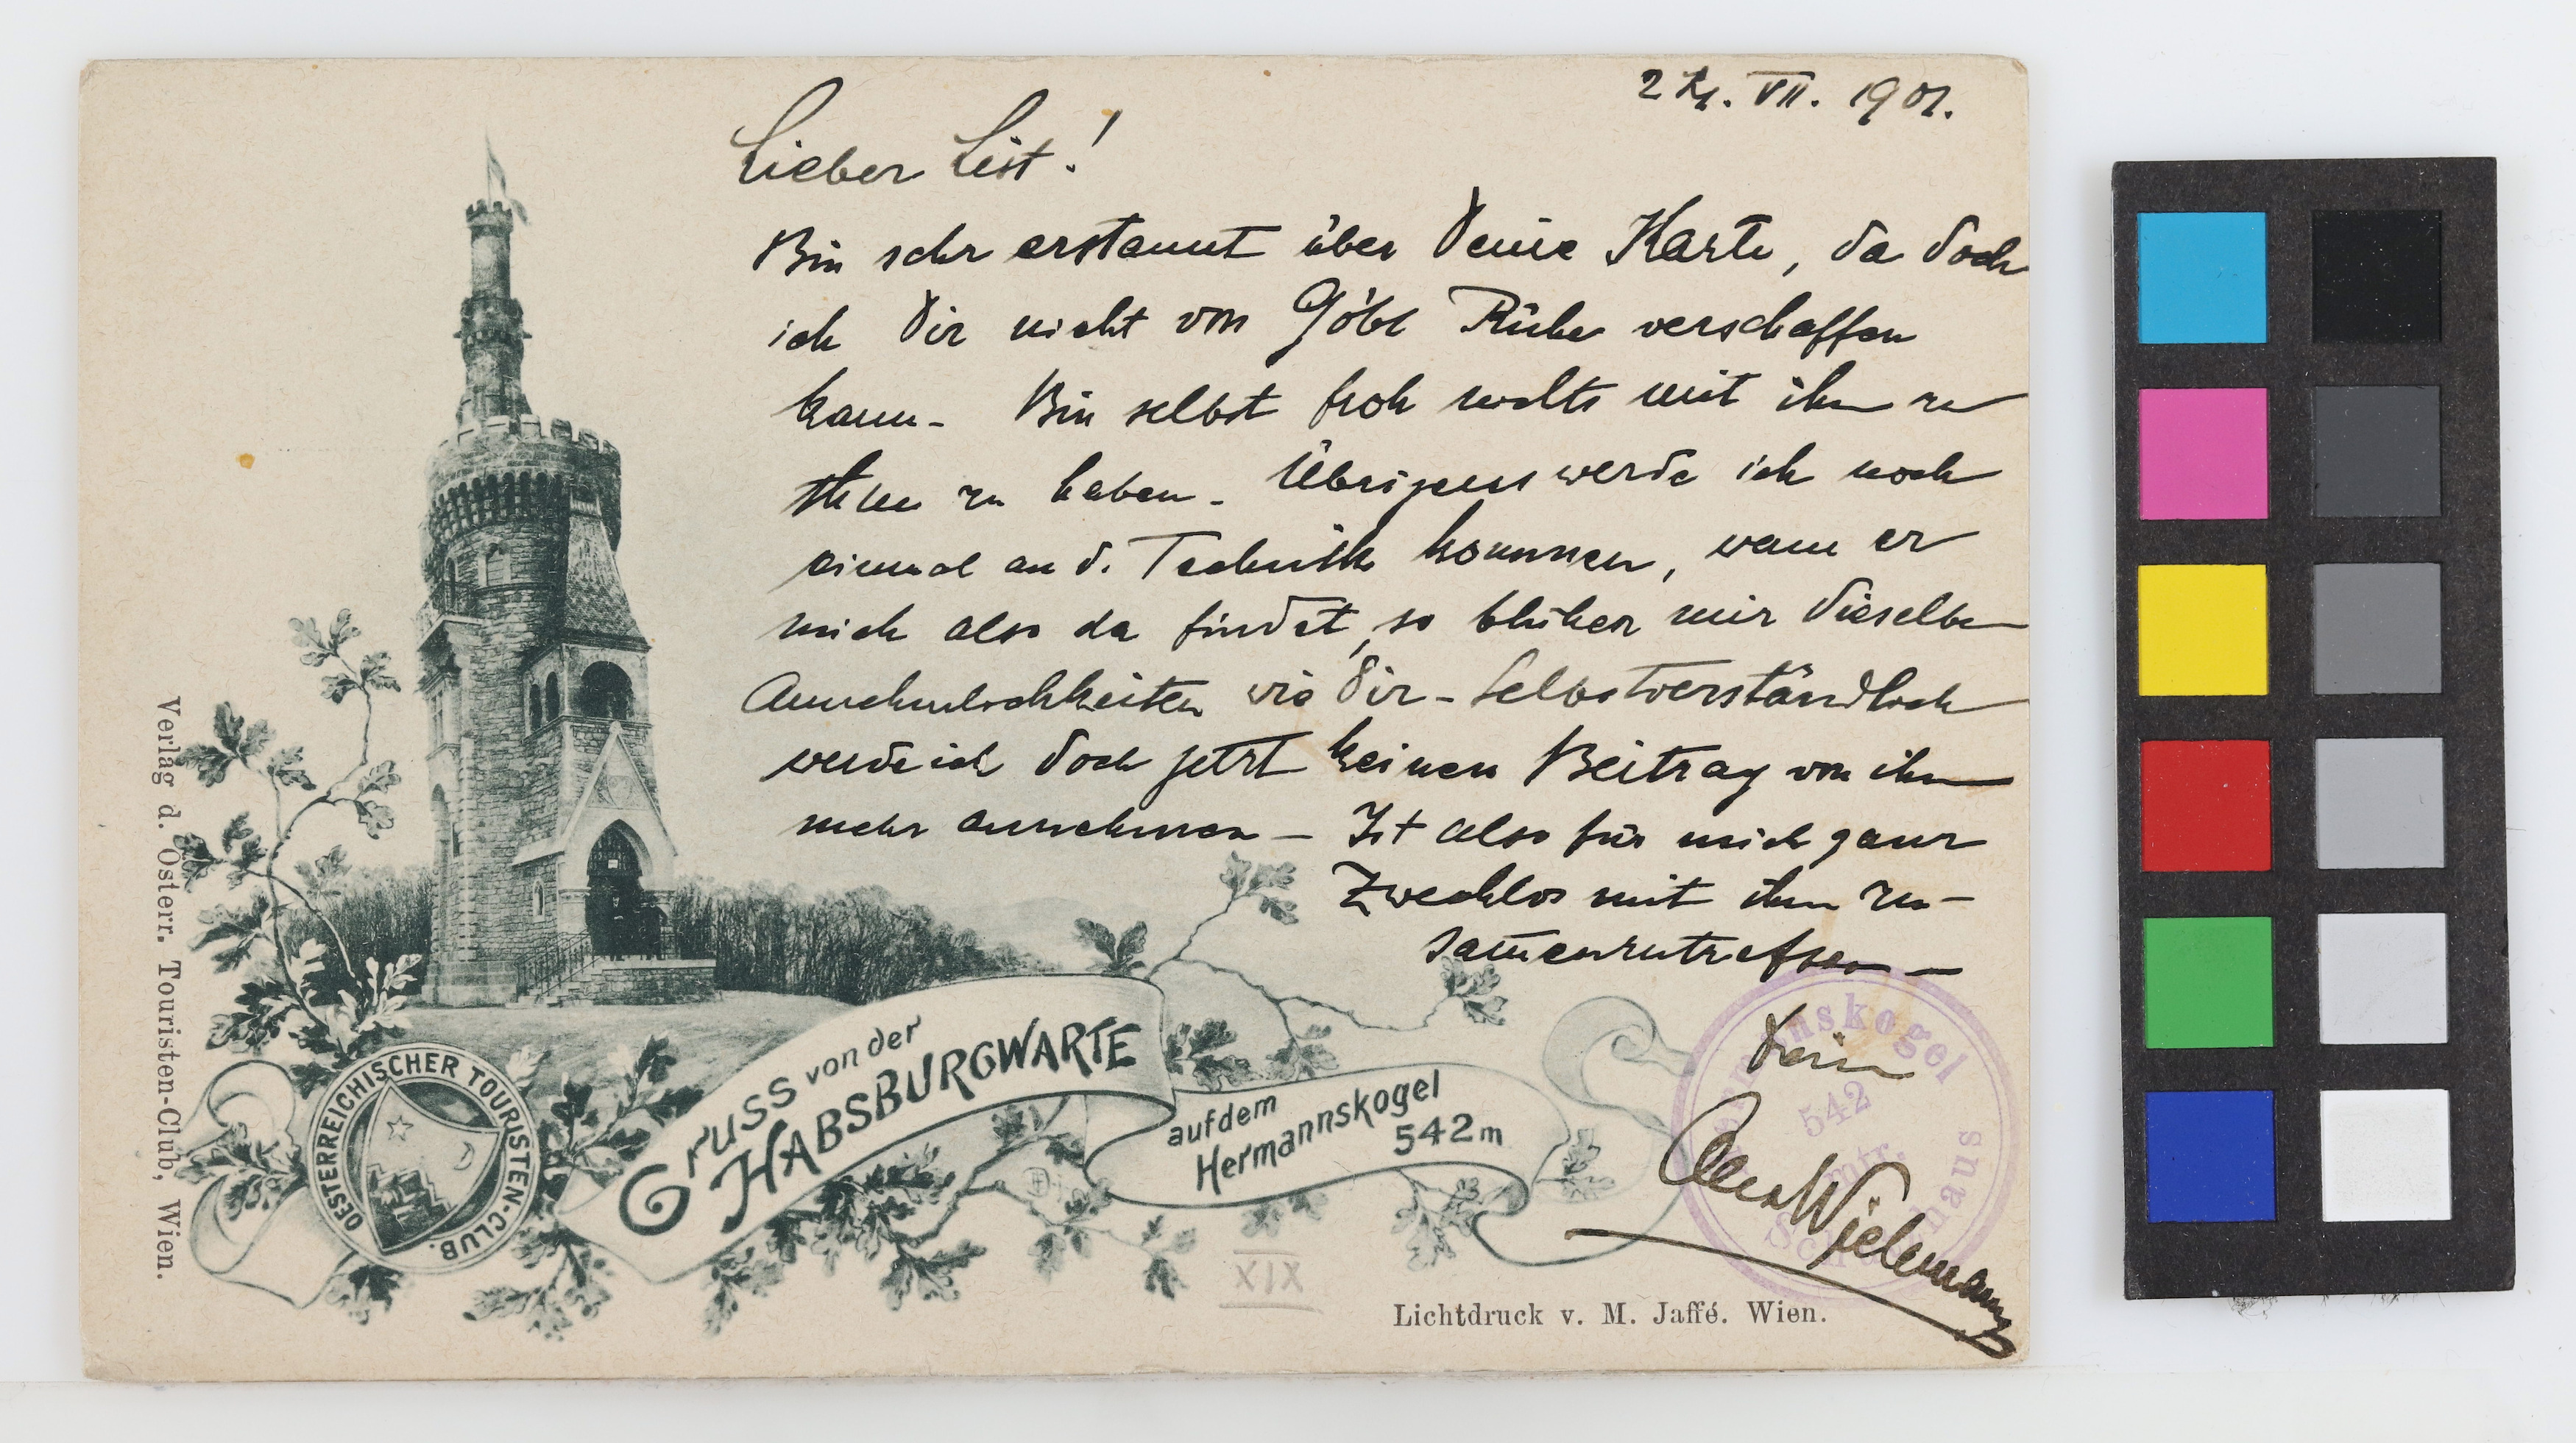 24. VII. 1901.
Lieber List!
Bin sehr erstaunt über Deine Karte, da doch
ich Dir nicht von Göbl Ruhe verschaffen
kann- Bin selbst froh nichts mit ihm zu
thun zu haben- Übrigens werde ich noch
einmal an d. Technik kommen, wenn er
mich also da findet, so blühen mir dieselben
Annehmlichkeiten wie Dir- Selbstverständlich
werde ich doch jetzt keinen Beitrag von ihm
mehr annehmen- Ist also für mich ganz
Zwecklos mit ihm zu-
sam̄enzutreffen-
Dein
Wielemans
Verlag d. Österr. Touristen-Club, Wien.
OESTERREICHISCHER TOURISTEN-CLUB.
Gruss von der
HABSBURGWARTE
auf dem
Hermannskogel
542m
542
XIX
Lichtdruck v. M. Jaffé. Wien.